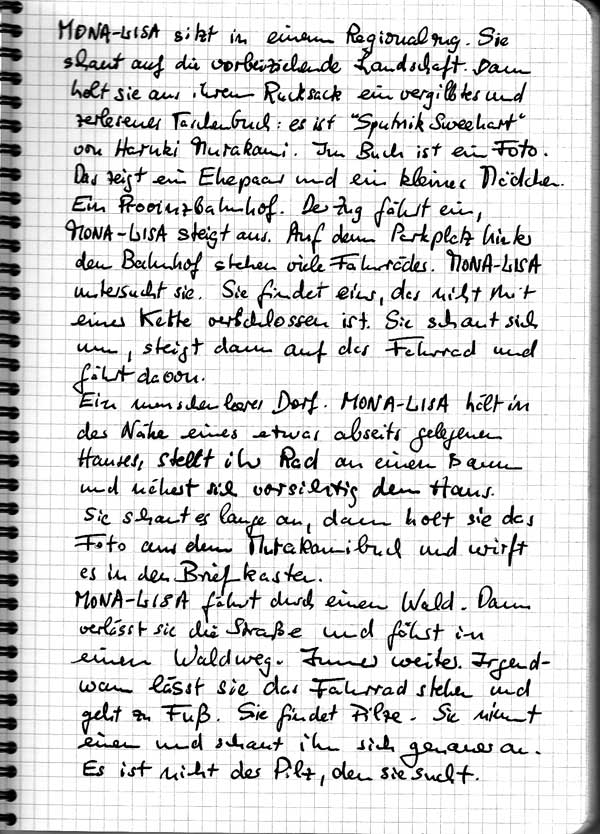 MONA-LISA sitzt in einem Regionalzug. Sie
schaut auf die vorbeiziehende Landschaft. Dann
holt sie aus ihrem Rucksack ein vergilbtes und
zerlesenes Taschenbuch: es ist "Sputnik Sweehart"
von Haruki Murakami. Im Buch ist ein Foto.
Das zeigt ein Ehepaar und ein kleines Mädchen.
Ein Provinzbahnhof. Der Zug fährt ein,
MONA-LISA steigt aus. Auf dem Parkplatz hinter
dem Bahnhof stehen viele Fahrräder. MONA-LISA
untersucht sie. Sie findet eins, das nicht mit
einer Kette verschlossen ist. Sie schaut sich
um, steigt dann auf das Fahrrad und
fährt davon.
Ein menschenleeres Dorf. MONA-LISA hält in
der Nähe eines etwas abseits gelegenen
Hauses, stellt ihr Rad an einen Baum
und nähert sich vorsichtig dem Haus.
Sie schaut es lange an, dann holt sie das
Foto aus dem Murakamibuch und wirft
es in den Briefkasten.
MONA-LISA fährt durch einen Wald. Dann
verlässt sie die Straße und fährt in
einen Waldweg. Immer weiter. Irgend-
wann lässt sie das Fahrrad stehen und
geht zu Fuß. Sie findet Pilze. Sie nimmt
einen und schaut ihn sich genauer an.
Es ist nicht der Pilz, den sie sucht.